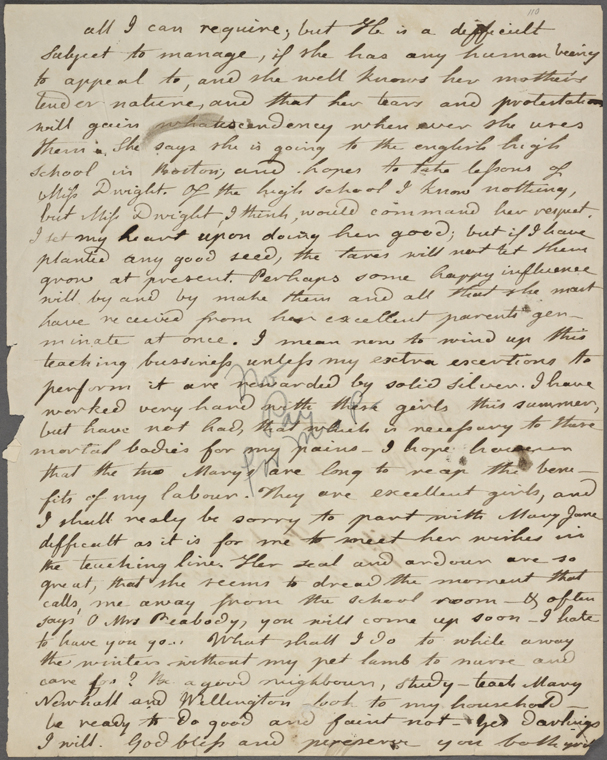 110
all I can require; but He is a difficult
subject to manage, if she has any human being
to appeal to, and she well knows her mothers
tender nature, and that her tears and protestation
will gain whatscendency when ever she uses
them. She says she is going to the english high
school in Boston, and hopes to take lessons of
Miss Dwight. Of the high school I know nothing,
but Miss Dwight, I think, would command her respect.
I set my heart upon doing her good; but if I have
planted any good seed, the tares will not let them
grow at present. Perhaps some happy influence
will by and by make them and all that she must
have received from her excellent parents ger-
minate at once. I mean now to wind up this
teaching bussiness, unless my extra exertions to
perform it are rewarded by solid silver. I have
worked very hard with these girls this summer,
but have not had, the which is necessary to these
mortal bodies for my pains - I hope however
that the two Marys are long to reap the bene-
fits of my labour. They are excellent girls, and
I shall realy be sorry to part with Mary Jane
difficult as it is for me to meet her wishes in
the teaching line. Her zeal and ardour are so
great, that she seems to dread the moment that
calls me away from the school room - & often
says O Mrs Peabody, you will come up soon - I hate
to have you go... What shall I do to while away
the winters without my pet lamb to nurse and
care for? Be a good neighbour, study - teach Mary
Newhall and Wellington look to my household -
be ready to do good and faint not - Yes darlings
I will. God bless and perserve you both
No
Pay
for Mrs P